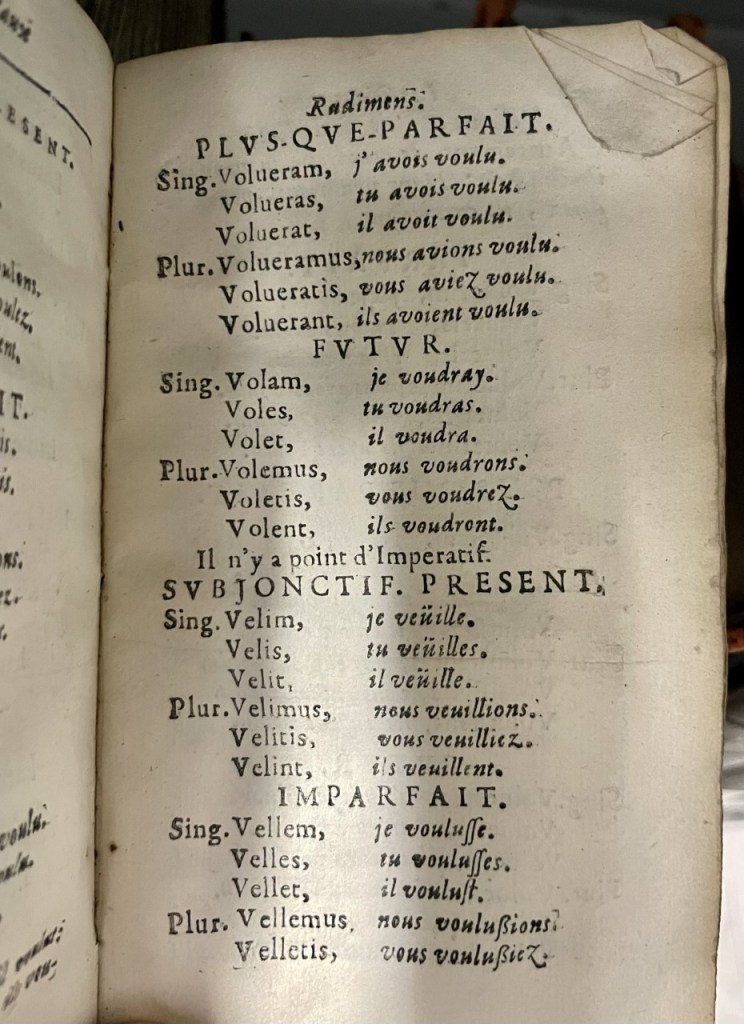 aux
ESENT.
oulez,
IT.
Rudimens.
PLVS-QVE-PARFAIT.
Sing. Volueram, j'avois voulu.
Volueras, tu avois voulu.
Voluerat, il avoit voulu.
Plur. Volueramus, nous avions voulu.
Volueratis, vous aviez voulu.
Voluerant, ils avoient voulu.
FVTVR.
Sing. Volam, je voudray.
Voles, tu voudras.
Volet, il voudra.
Plur. Volemus, nous voudrons.
Voletis, vous voudrez.
Volent, ils voudront.
Il n'y a point d'Imperatif.
SVBJONCTIF. PRESENT.
Sing. Velim, je veüille.
Velis, tu veüilles.
Velit, il veüille.
Plur. Velimus, nous veuillions.
Velitis, vous veuilliez.
Velint, ils veuillent.
IMPARFAIT.
Sing. Vellem, je vouluſſe.
Velles, tu vouluſſes.
Vellet, il vouluſt.
Plur. Vellemus, nous voulußions.
Velletis, vous voulußiez.